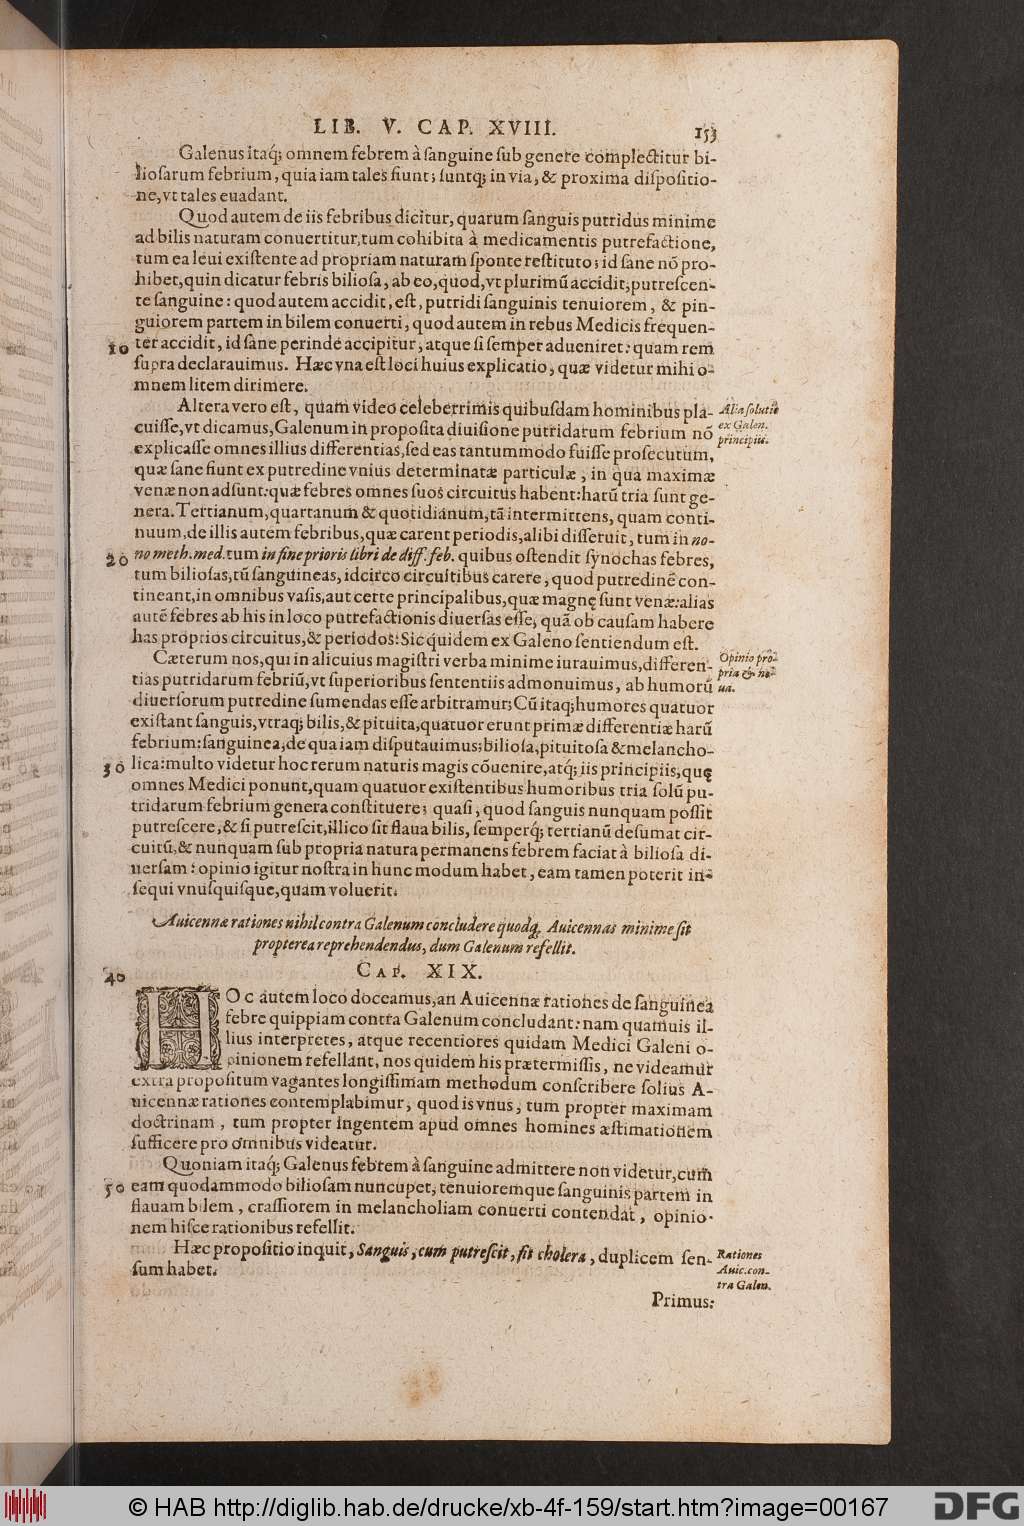 LIB. V. CAP. XVIII. 153
Galenus itaq; omnem febrem à sanguine sub genere complectitur bi-
liosarum febrium, quia iam tales fiunt; suntq; in via, & proxima dispositio-
ne, vt tales euadant.
Quod autem de iis febribus dicitur, quarum sanguis putridus minime
ad bilis naturam conuertitur, tum cohibita à medicamentis putrefactione,
tum ea leui existente ad propriam naturam sponte restituto; id sane nō pro-
hibet, quin dicatur febris biliosa, ab eo, quod, vt plurimū accidit, putrescen-
te sanguine: quod autem accidit, est, putridi sanguinis tenuiorem, & pin-
guiorem partem in bilem conuerti, quod autem in rebus Medicis frequen-
10 ter accidit, id sane perinde accipitur, atque si semper adueniret: quam rem
supra declarauimus. Hæc vna est loci huius explicatio, quæ videtur mihi o-
mnem litem dirimere.
Altera vero est, quam video celeberrimis quibusdam hominibus pla-
Alia solutio
cuisse, vt dicamus, Galenum in proposita diuisione putridarum febrium nō
ex Galen.
principiis.
explicasse omnes illius differentias, sed eas tantummodo fuisse prosecutum,
quæ sane fiunt ex putredine vnius determinatæ particulæ, in qua maximæ
venæ non adsunt: quæ febres omnes suos circuitus habent: harū tria sunt ge-
nera. Tertianum, quartanum & quotidianum, tā intermittens, quam conti-
nuum, de illis autem febribus, quæ carent periodis, alibi disseruit, tum in no-
20 no meth. med. tum in fine prioris libri de diff. feb. quibus ostendit synochas febres,
tum biliosas, tū sanguineas, idcirco circuitibus carere, quod putredinē con-
tineant, in omnibus vasis, aut certe principalibus, quæ magnę sunt venæ: alias
autē febres ab his in loco putrefactionis diuersas esse, quā ob causam habere
has proprios circuitus, & periodos: Sic quidem ex Galeno sentiendum est.
Cæterum nos, qui in alicuius magistri verba minime iurauimus, differen-
Opinio pro-
pria & no-
ua.
tias putridarum febriū, vt superioribus sententiis admonuimus, ab humorū
diuersorum putredine sumendas esse arbitramur; Cū itaq; humores quatuor
existant sanguis, vtraq; bilis, & pituita, quatuor erunt primæ differentiæ harū
febrium: sanguinea, de qua iam disputauimus: biliosa, pituitosa & melancho-
30 lica: multo videtur hoc rerum naturis magis cōuenire, atq; iis principiis, quę
omnes Medici ponunt, quam quatuor existentibus humoribus tria solū pu-
tridarum febrium genera constituere; quasi, quod sanguis nunquam possit
putrescere, & si putrescit, illico sit flaua bilis, semperq; tertianū desumat cir-
cuitū, & nunquam sub propria natura permanens febrem faciat à biliosa di-
uersam: opinio igitur nostra in hunc modum habet, eam tamen poterit in-
sequi vnusquisque, quam voluerit.
Auicennæ rationes nihil contra Galenum concludere quodq, Auicennas minime sit
propterea reprehendendus, dum Galenum refellit.
40 CAP. XIX.
HOC autem loco doceamus, an Auicennæ rationes de sanguinea
febre quippiam contra Galenum concludant: nam quamuis il-
lius interpretes, atque recentiores quidam Medici Galeni o-
pinionem refellant, nos quidem his prætermissis, ne videamur
extra propositum vagantes longissimam methodum conscribere solius A-
uicennæ rationes contemplabimur, quod is vnus, tum propter maximam
doctrinam, tum propter ingentem apud omnes homines æstimationem
sufficere pro omnibus videatur.
Quoniam itaq; Galenus febrem à sanguine admittere non videtur, cum
50 eam quodammodo biliosam nuncupet, tenuioremque sanguinis partem in
flauam bilem, crassiorem in melancholiam conuerti contendat, opinio-
nem hisce rationibus refellit.
Hæc propositio inquit, Sanguis, cum putrescit, fit cholera, duplicem sen-
Rationes
Auic. con-
tra Galen.
sum habet.
Primus:
© HAB http://diglib.hab.de/drucke/xb-4f-159/start.htm?image=00167
DFG